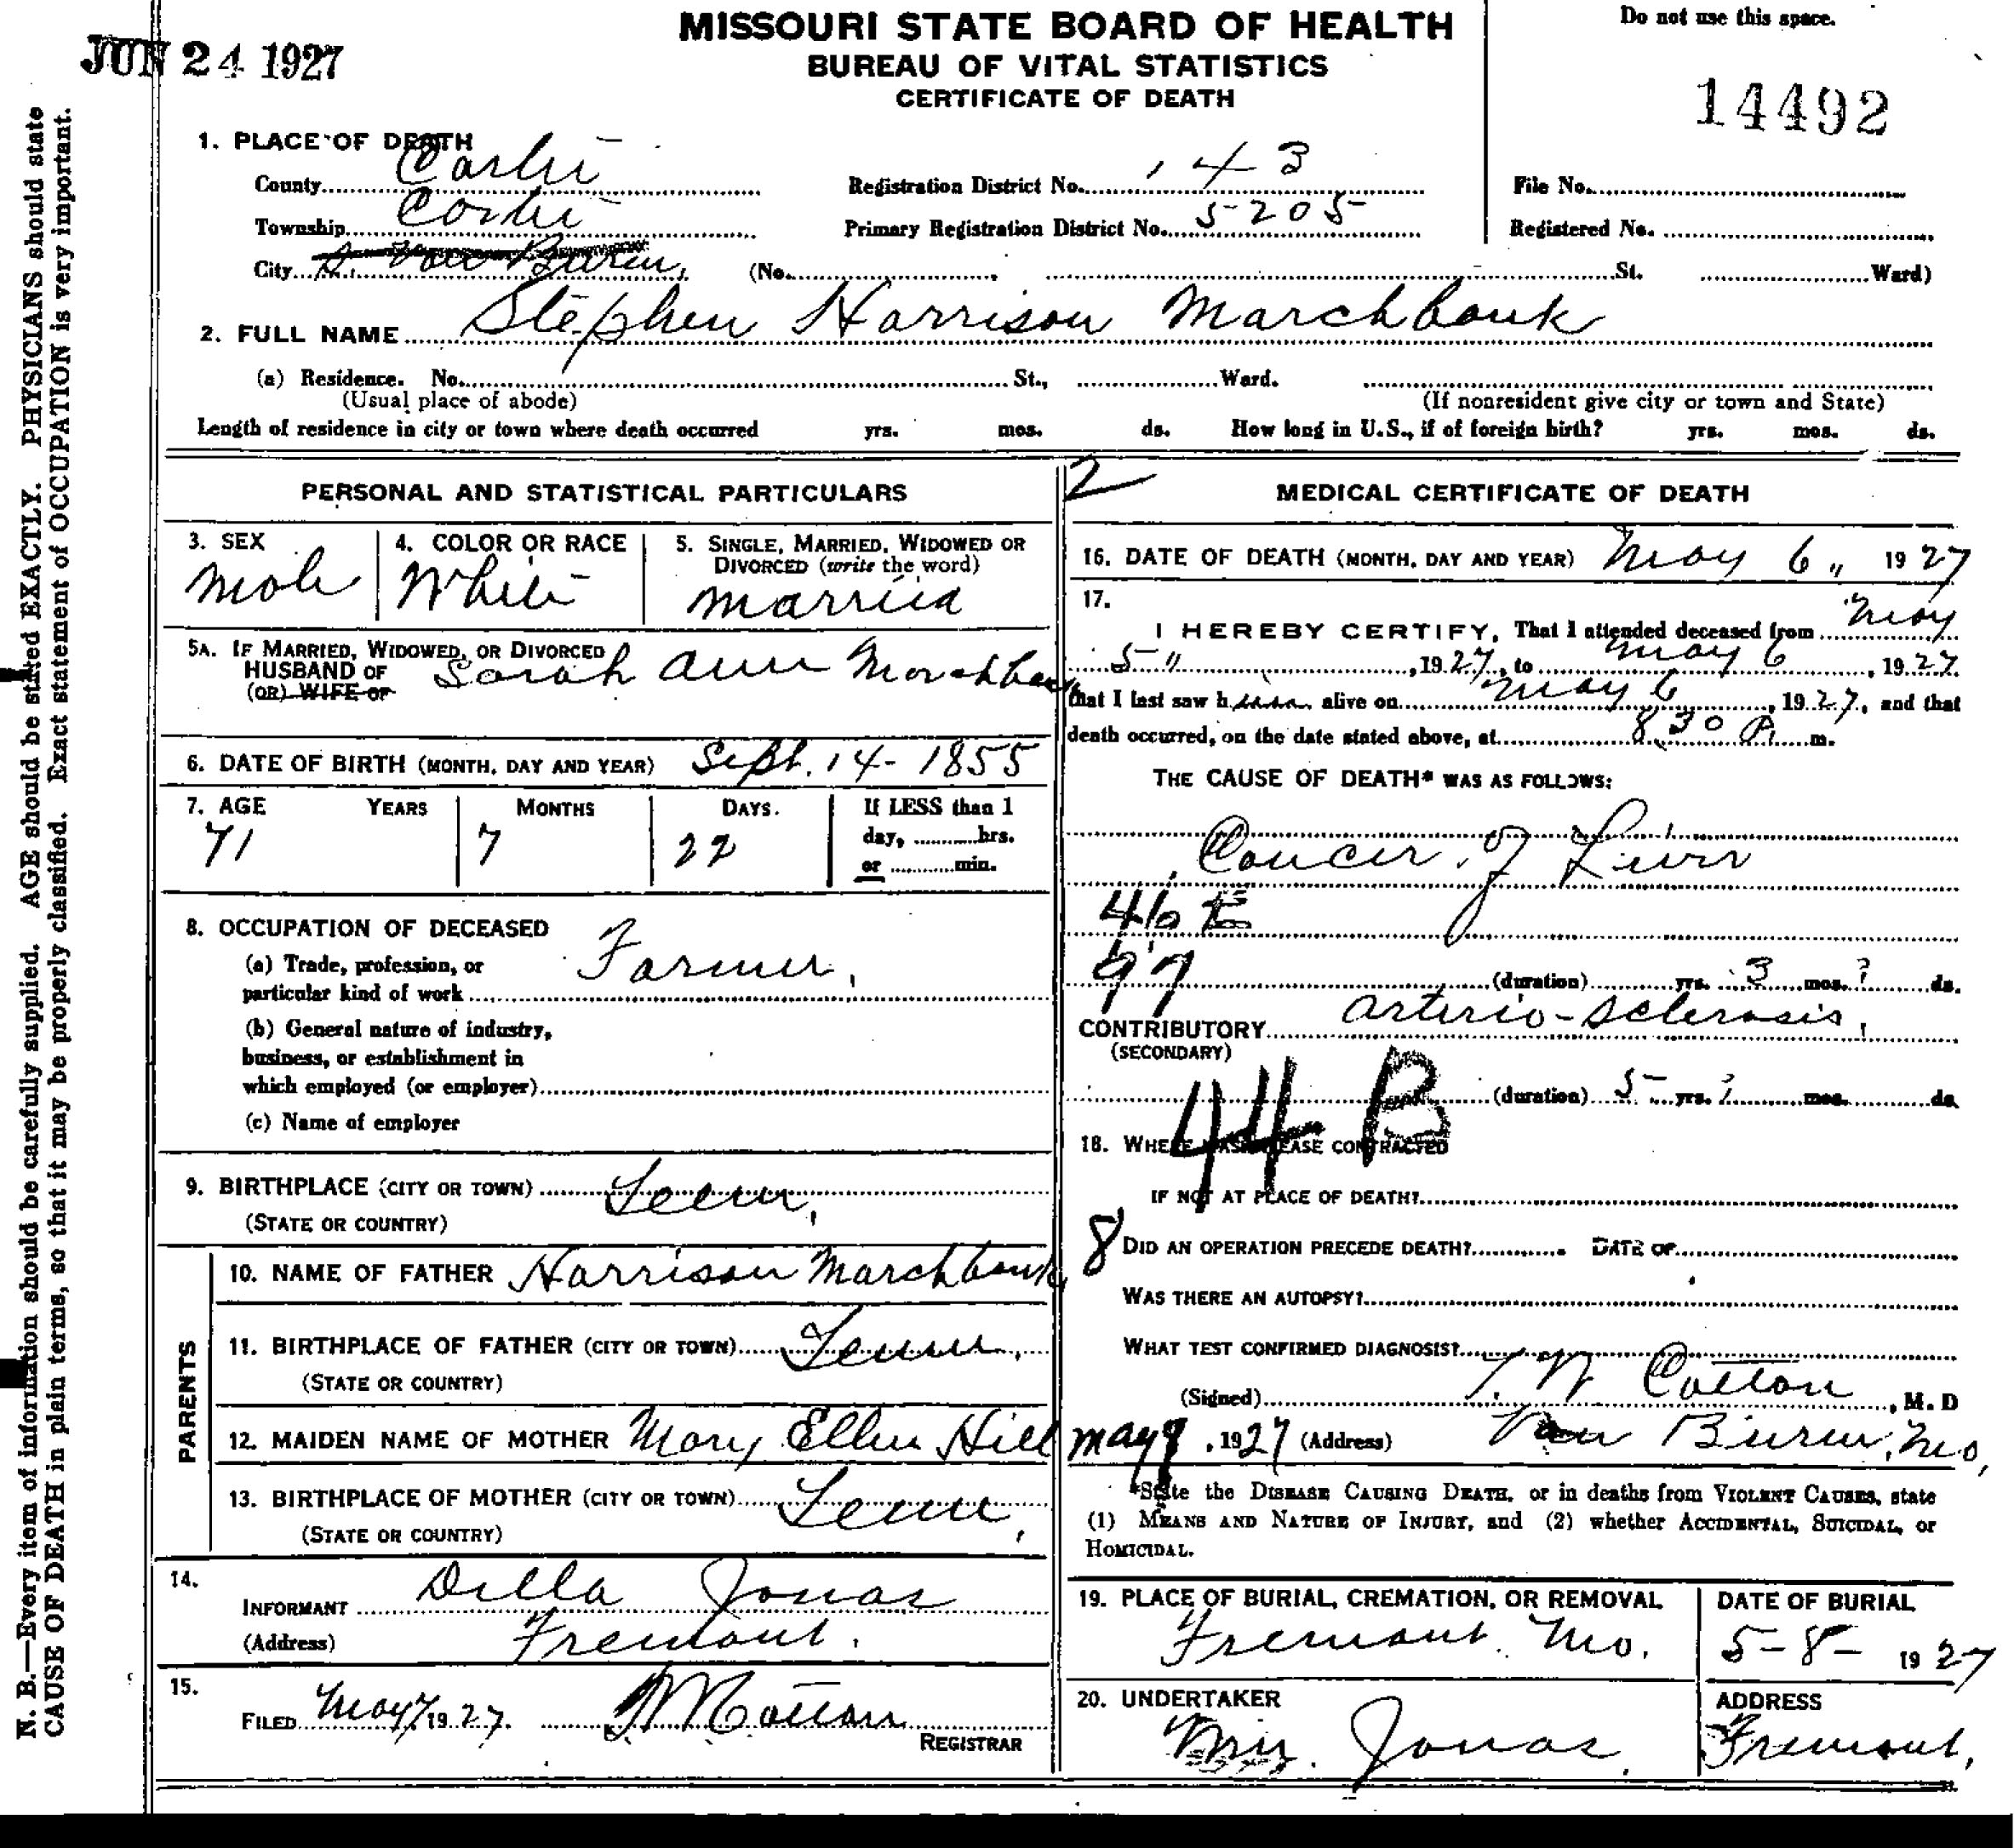 JUN 24 1927
MISSOURI STATE BOARD OF HEALTH
BUREAU OF VITAL STATISTICS
CERTIFICATE OF DEATH
Do not use this space.
14492
1. PLACE OF DEATH
County Carter
Registration District No. 143
File No.
Township Carter
Primary Registration District No. 5205
Registered No.
City Van Buren, (No. , St. Ward)
2. FULL NAME Stephen Harrison Marchbank
(a) Residence. No. St., Ward.
(Usual place of abode) (If nonresident give city or town and State)
Length of residence in city or town where death occurred yrs. mos. ds. How long in U.S., if of foreign birth? yrs. mos. ds.
PERSONAL AND STATISTICAL PARTICULARS
3. SEX
Male
4. COLOR OR RACE
White
5. SINGLE, MARRIED, WIDOWED OR
DIVORCED (write the word)
Married
5A. IF MARRIED, WIDOWED, OR DIVORCED
HUSBAND OF Sarah Ann Marchbank
(OR) WIFE OF
6. DATE OF BIRTH (MONTH, DAY AND YEAR) Sept. 14 - 1855
7. AGE YEARS MONTHS DAYS. If LESS than 1
71 7 22
day, hrs.
or min.
8. OCCUPATION OF DECEASED
(a) Trade, profession, or
particular kind of work Farmer,
(b) General nature of industry,
business, or establishment in
which employed (or employer)
(c) Name of employer
9. BIRTHPLACE (CITY OR TOWN) Tenn,
(STATE OR COUNTRY)
PARENTS
10. NAME OF FATHER Harrison Marchbank
11. BIRTHPLACE OF FATHER (CITY OR TOWN) Tenn,
(STATE OR COUNTRY)
12. MAIDEN NAME OF MOTHER Mary Ellen Hill
13. BIRTHPLACE OF MOTHER (CITY OR TOWN) Tenn,
(STATE OR COUNTRY)
14.
INFORMANT Della Jonas
(Address) Fremont.
15.
FILED May 7, 1927. Cotton
REGISTRAR
2
MEDICAL CERTIFICATE OF DEATH
16. DATE OF DEATH (MONTH, DAY AND YEAR) May 6 " 1927
17.
I HEREBY CERTIFY, That I attended deceased from May
5 " , 1927, to May 6 , 1927.
that I last saw him alive on May 6 , 1927, and that
death occurred, on the date stated above, at 8.30 P. m.
THE CAUSE OF DEATH* WAS AS FOLLOWS:
Cancer of Liver
46
97
(duration) yrs. 3 mos. ? ds.
CONTRIBUTORY arterio-sclerosis,
(SECONDARY)
44 B
(duration) 5 yrs. ? mos. ds.
18. WHERE WAS DISEASE CONTRACTED
IF NOT AT PLACE OF DEATH?
8
DID AN OPERATION PRECEDE DEATH? DATE OF
WAS THERE AN AUTOPSY?
WHAT TEST CONFIRMED DIAGNOSIS?
(Signed) T. W Cotton , M. D
May , 1927 (Address) Van Buren, Mo,
*State the DISEASE CAUSING DEATH, or in deaths from VIOLENT CAUSES, state
(1) MEANS AND NATURE OF INJURY, and (2) whether ACCIDENTAL, SUICIDAL, or
HOMICIDAL.
19. PLACE OF BURIAL, CREMATION, OR REMOVAL
Fremont. Mo.
DATE OF BURIAL
5-8- 1927
20. UNDERTAKER
Jonas
ADDRESS
Fremont,
N. B.—Every item of information should be carefully supplied. AGE should be stated EXACTLY. PHYSICIANS should state
CAUSE OF DEATH in plain terms, so that it may be properly classified. Exact statement of OCCUPATION is very important.